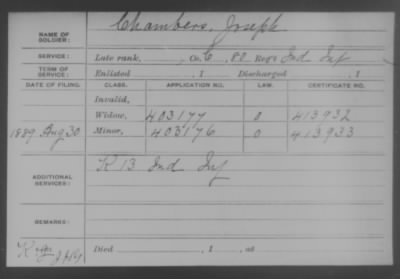 NAME OF SOLDIER: Chambers, Joseph
SERVICE: Late rank, , Co. C, 80 Reg't Ind Inf
TERM OF SERVICE: Enlisted , 1 Discharged , 1
DATE OF FILING. CLASS. APPLICATION NO. LAW. CERTIFICATE NO.
Invalid,
Widow, 403177 0 413932
1889 Aug 30 Minor, 403176 0 413933
ADDITIONAL SERVICES: K 13 Ind Inf
REMARKS:
Died , 1 , at